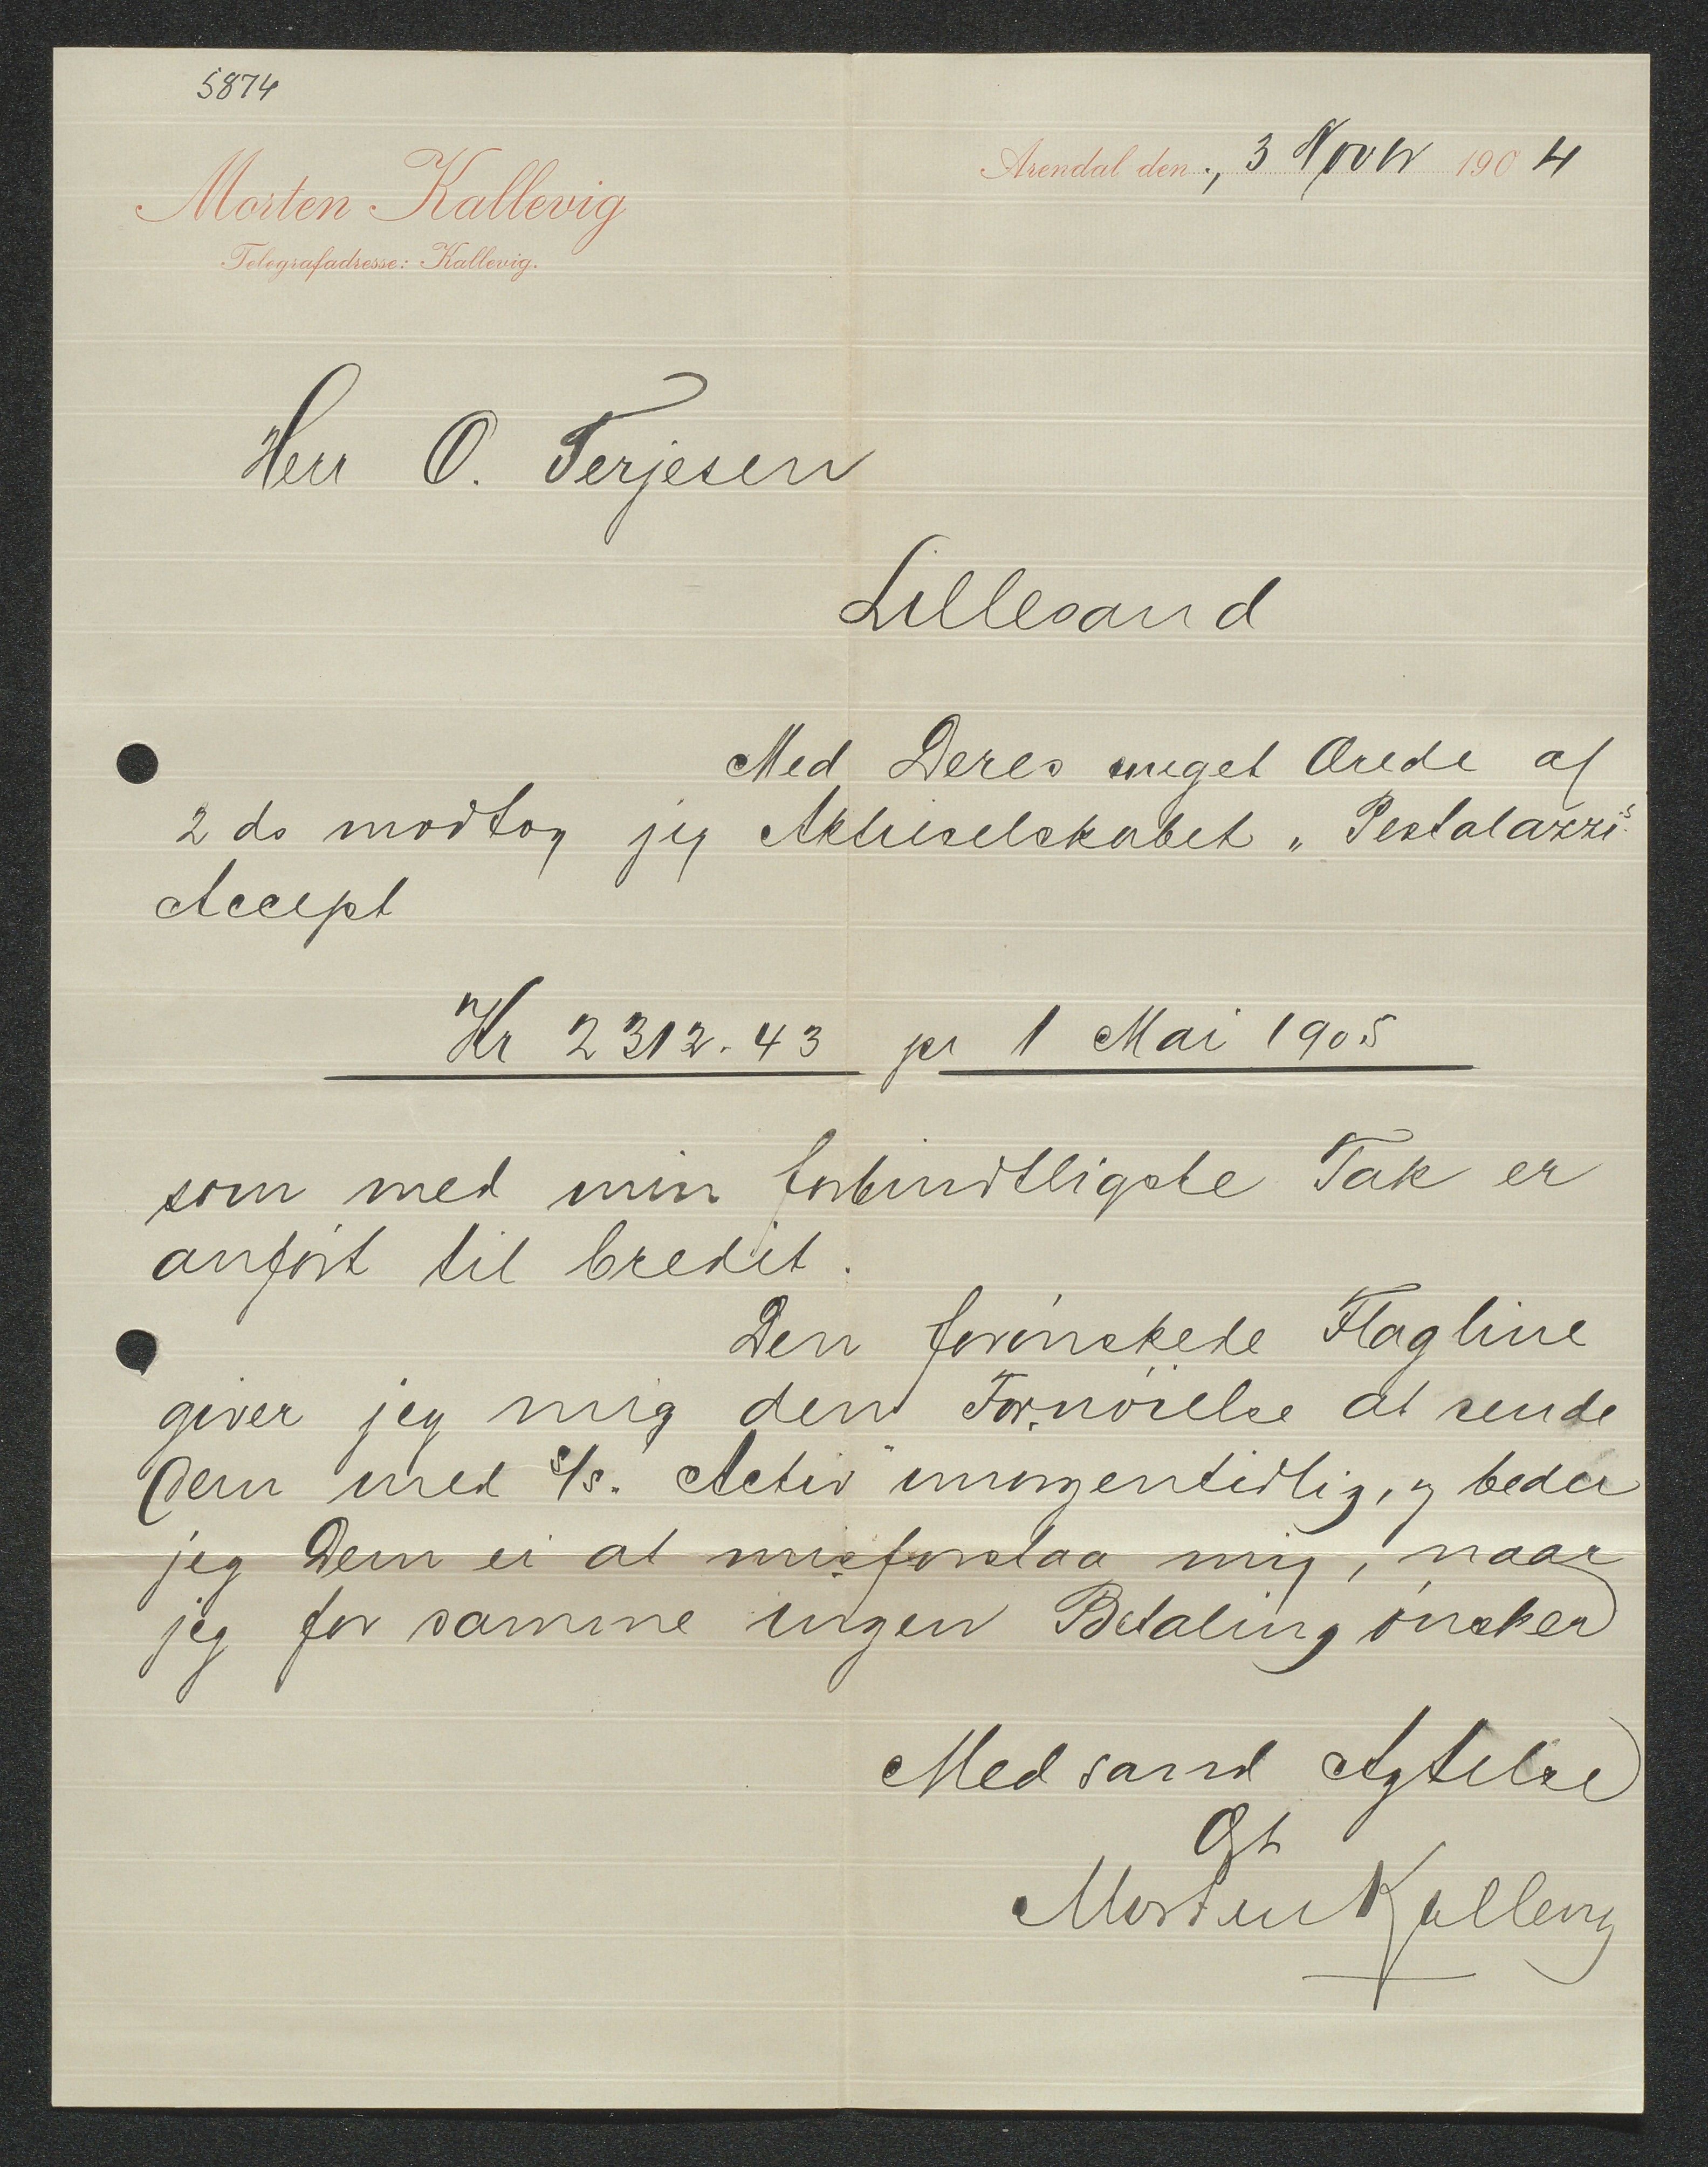 5874
Morten Kallevig
Telegrafadresse: Kallevig.
Arendal den 3 Novbr 1904
Herr O. Terjesen
Lillesand
Med Deres meget Ærede af
2 ds modtog jeg Aktieselskabet „Pestalozzi"s
Accept
Kr 2312.43 pr 1 Mai 1905
som med min forbindtligste Tak er
anført til Credit.
Den forønskede Flagline
giver jeg mig den Fornøielse at sende
Dem med s/s. Activ" imorgentidlig, og beder
jeg Dem ei at misforstaa mig, naar
jeg for samme ingen Betaling ønsker
Med sand Agtelse
Morten Kallevig